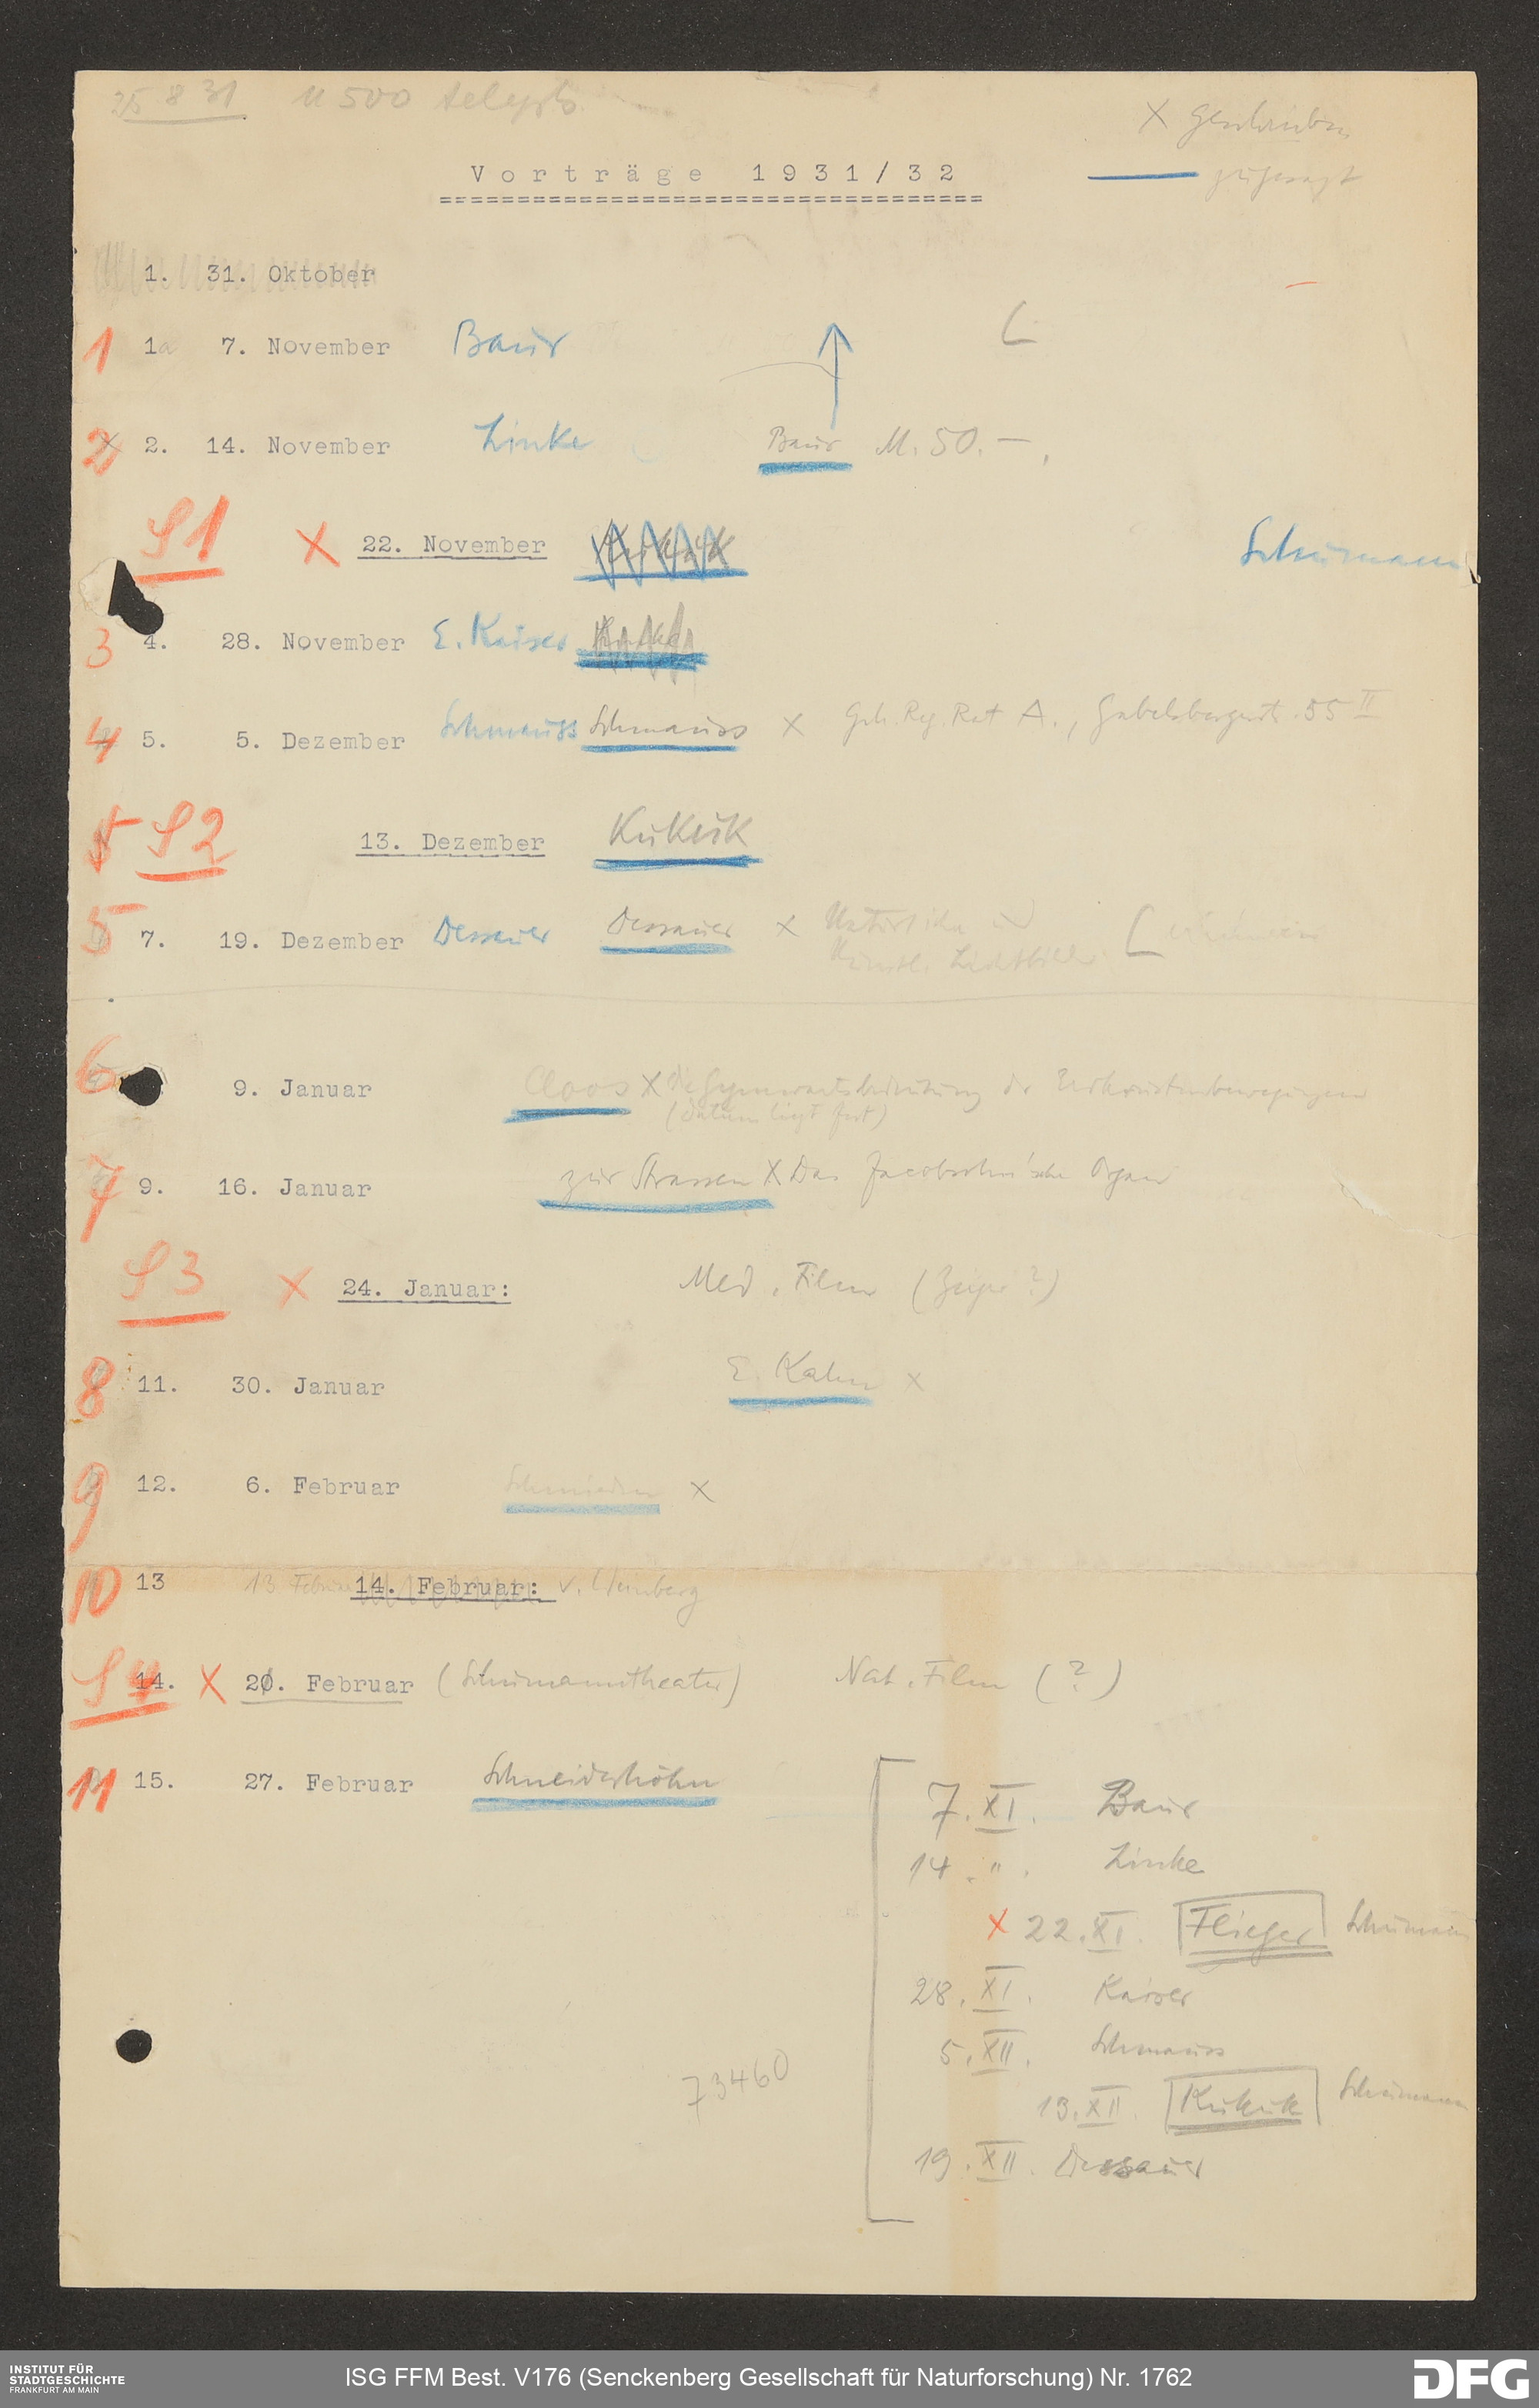 25 8 31 M 500
X geschrieben
Vorträge 1931/32
zugesagt
1. 31. Oktober
1 1a 7. November Baur
2 2. 14. November Linke Baur M. 50.—
S1 X 22. November Schumann
3 4. 28. November E. Kaiser
4 5. 5. Dezember Schmauss Schmauss X Geh. Reg. Rat A., Gabelsbergerstr. 55 II
5 S2 13. Dezember Kukuk
5 7. 19. Dezember Dessauer Dessauer X Natürliche u
Künstl. Lichtbilder
6 9. Januar Cloos X die Gegenwartsbedeutung der Erdkrustenbewegungen
(Datum liegt fest)
7 9. 16. Januar zur Strassen X Das Jacobsohn'sche Organ
S3 X 24. Januar: Med. Film
8 11. 30. Januar E. Kahn X
9 12. 6. Februar Schmieden X
10 13 13 Februar 14. Februar: v. Weinberg
S4 14. X 20. Februar (Schumanntheater) Nat. Film (?)
11 15. 27. Februar Schneiderhöhn
7. XI. Baur
14. ". Linke
X 22. XI. Flieger Schumann
28. XI. Kaiser
5. XII. Schmauss
73460
13. XII. Kukuk Schumann
19. XII. Dessauer
INSTITUT FÜR
STADTGESCHICHTE
FRANKFURT AM MAIN
ISG FFM Best. V176 (Senckenberg Gesellschaft für Naturforschung) Nr. 1762
DFG